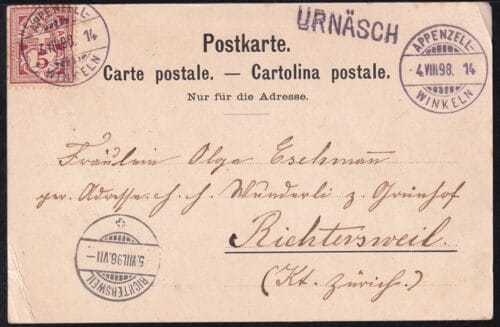 URNÄSCH
APPENZELL-
4.VIII.98. 14
WINKELN
5
APPENZELL-
4.VIII.98. 14
WINKELN
Postkarte.
Carte postale. — Cartolina postale.
Nur für die Adresse.
Fräulein Olga Eschmann
per. Adresse. h. h. Wunderli z. Grünhof
Richtersweil.
(Kt. Zürich.)
5.VIII.98.VII-
RICHTERSWEIL